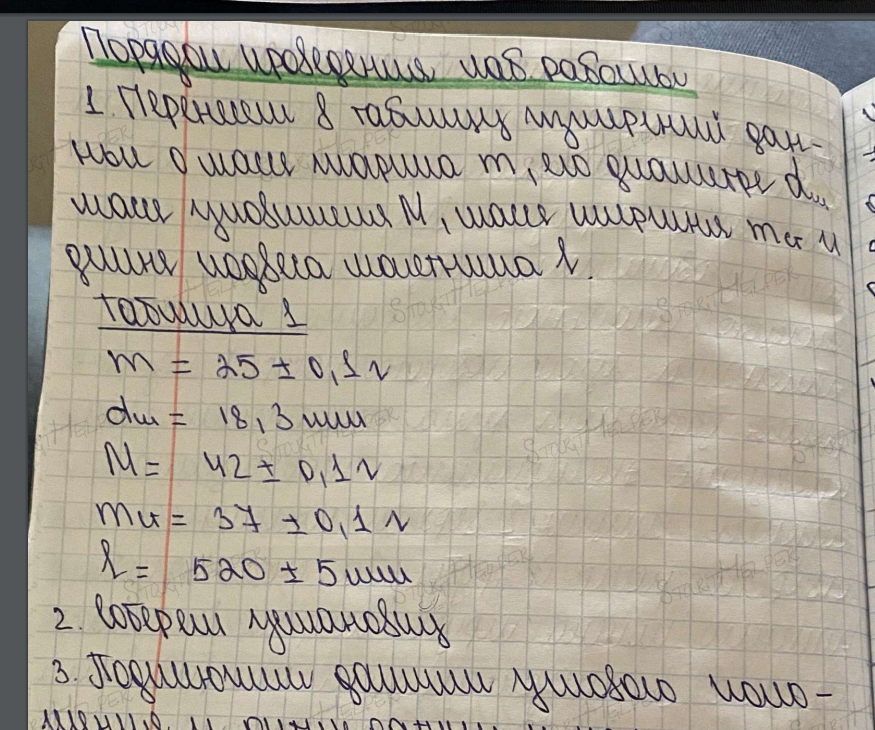 Порядок проведения лаб. работы
1. Перенесем в таблицу измерений дан-
ные о массе шарика m, его диаметре dш
массе уловителя M, массе стержня mст и
длине подвеса маятника l.
Таблица 1
m = 25 ± 0,1 г
dш = 18,3 мм
M = 42 ± 0,1 г
mст = 37 ± 0,1 г
l = 520 ± 5 мм
2. Соберем установку
3. Подключим датчик углового поло-
жения и
STARTHELPER